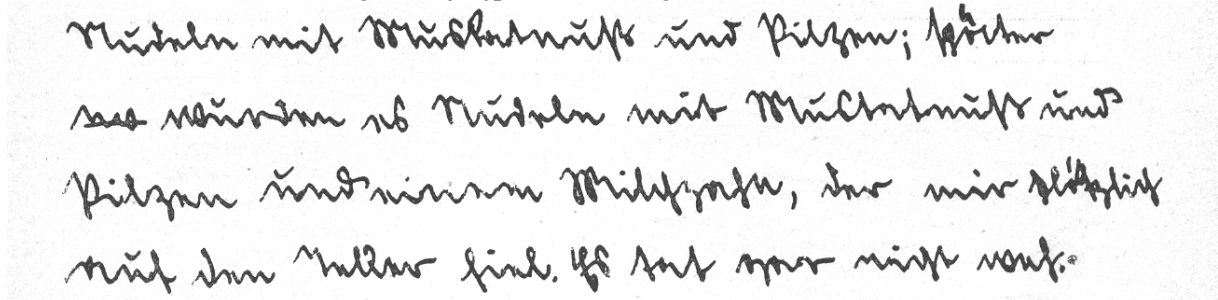 Nudeln mit Muskatnuß und Pilzen; später
wurden es Nudeln mit Muskatnuß und
Pilzen und einem Milchzahn, der mir plötzlich
auf den Teller fiel. Es tat gar nicht weh.